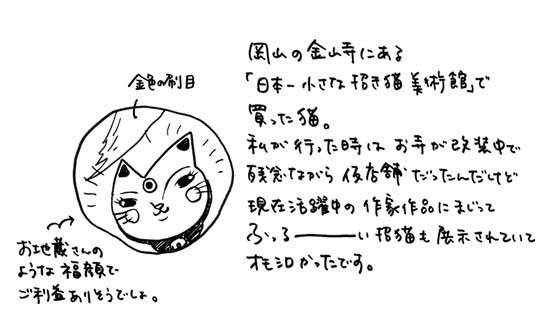 岡山の金山寺にある
「日本一小さな招き猫美術館」で
買った猫。
私が行った時は お寺が改装中で
残念ながら仮店舗だったんだけど
現在活躍中の作家作品にまじって
ふっるーーーい招猫も展示されていて
オモシロかったです。
金色の刷目
お地蔵さんの
ような福顔で
ご利益ありそうでしょ。